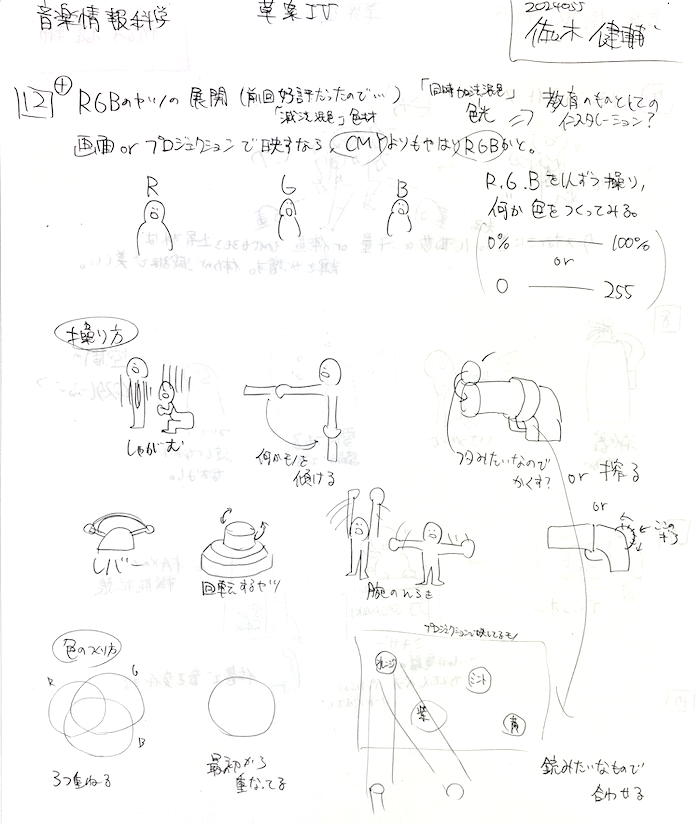 音楽情報科学 草案IV
2024055
佐木 健輔
12 + RGBのヤツの展開 (前回好評だったので…) 「同時加法混色」色光 ⇒ 教育のものとしての
「減法混色」色材 インスタレーション?
画面 or プロジェクションで映すなら、CMYよりもやはりRGBかと。
R G B
R.G.Bを1人ずつ操り,
何か色をつくってみる。
0% 100%
or
0 255
操り方
しゃがむ
何かモノを
傾ける
フタみたいなので
かくす?
or 搾る
レバー
回転するヤツ
腕のふるさ
or
色のつくり方
R G
B
3つ重ねる
最初から
重なってる
プロジェクションで映してるモノ
オレンジ
ミント
紫
青
銃みたいなもので
合わせる